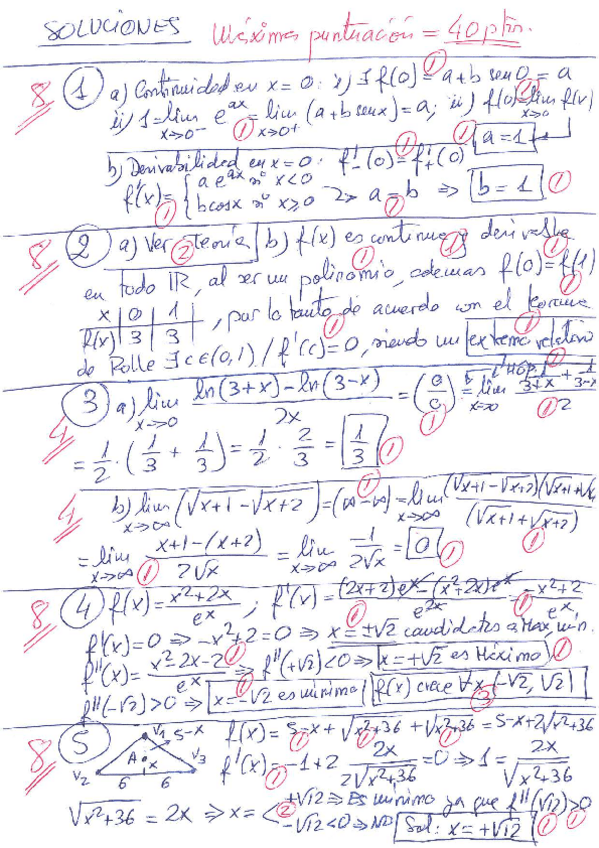 SOLUCIONES Máxima puntuación = 40 ptos.
8 ① a) Continuidad en x = 0: i) ∃ f(0) = a + b sen 0 = a
ii) 1 = lim x→0⁻ e^{ax} = lim x→0⁺ (a + b senx) = a; iii) f(0) = lim x→0 f(x)
a = 1
b) Derivabilidad en x = 0: f'₋(0) = f'₊(0)
f'(x) = { a e^{ax} si x < 0
b cosx si x ≥ 0 ⇒ a = b ⇒ b = 1
8 ② a) Ver Teoría b) f(x) es continua y derivable
en todo ℝ, al ser un polinomio, ademas f(0) = f(1)
x | 0 | 1
f(x) | 3 | 3 , por lo tanto de acuerdo con el teorema
de Rolle ∃ c ∈ (0,1) / f'(c) = 0, siendo un extremo relativo
③ a) lim x→0 (ln(3+x) − ln(3−x))/2x = (0/0) = L'HOP. lim x→0 (1/(3+x) + 1/(3−x))/2
4 = 1/2 · (1/3 + 1/3) = 1/2 · 2/3 = 1/3
4 b) lim x→∞ (√x+1 − √x+2) = (∞ − ∞) = lim x→∞ (√x+1 − √x+2)(√x+1 + √x+2)/(√x+1 + √x+2)
= lim x→∞ (x+1 − (x+2))/2√x = lim x→∞ −1/2√x = 0
8 ④ f(x) = (x²+2x)/eˣ ; f'(x) = ((2x+2)eˣ − (x²+2x)eˣ)/e^{2x} = (−x²+2)/eˣ
f'(x) = 0 ⇒ −x²+2 = 0 ⇒ x = ±√2 candidatos a Max, min.
f''(x) = (x²−2x−2)/eˣ f''(+√2) < 0 ⇒ x = +√2 es Máximo
f''(−√2) > 0 ⇒ x = −√2 es mínimo f(x) crece ∀x (−√2, √2)
8 ⑤ V₁ 5−x f(x) = 5−x + √x²+36 + √x²+36 = 5−x+2√x²+36
A x V₂ V₃ 6 6 f'(x) = −1+2 2x/2√x²+36 = 0 ⇒ 1 = 2x/√x²+36
√x²+36 = 2x ⇒ x = < +√12 ⇒ Es mínimo ya que f''(√12) > 0
−√12 < 0 ⇒ NO Sol: x = +√12